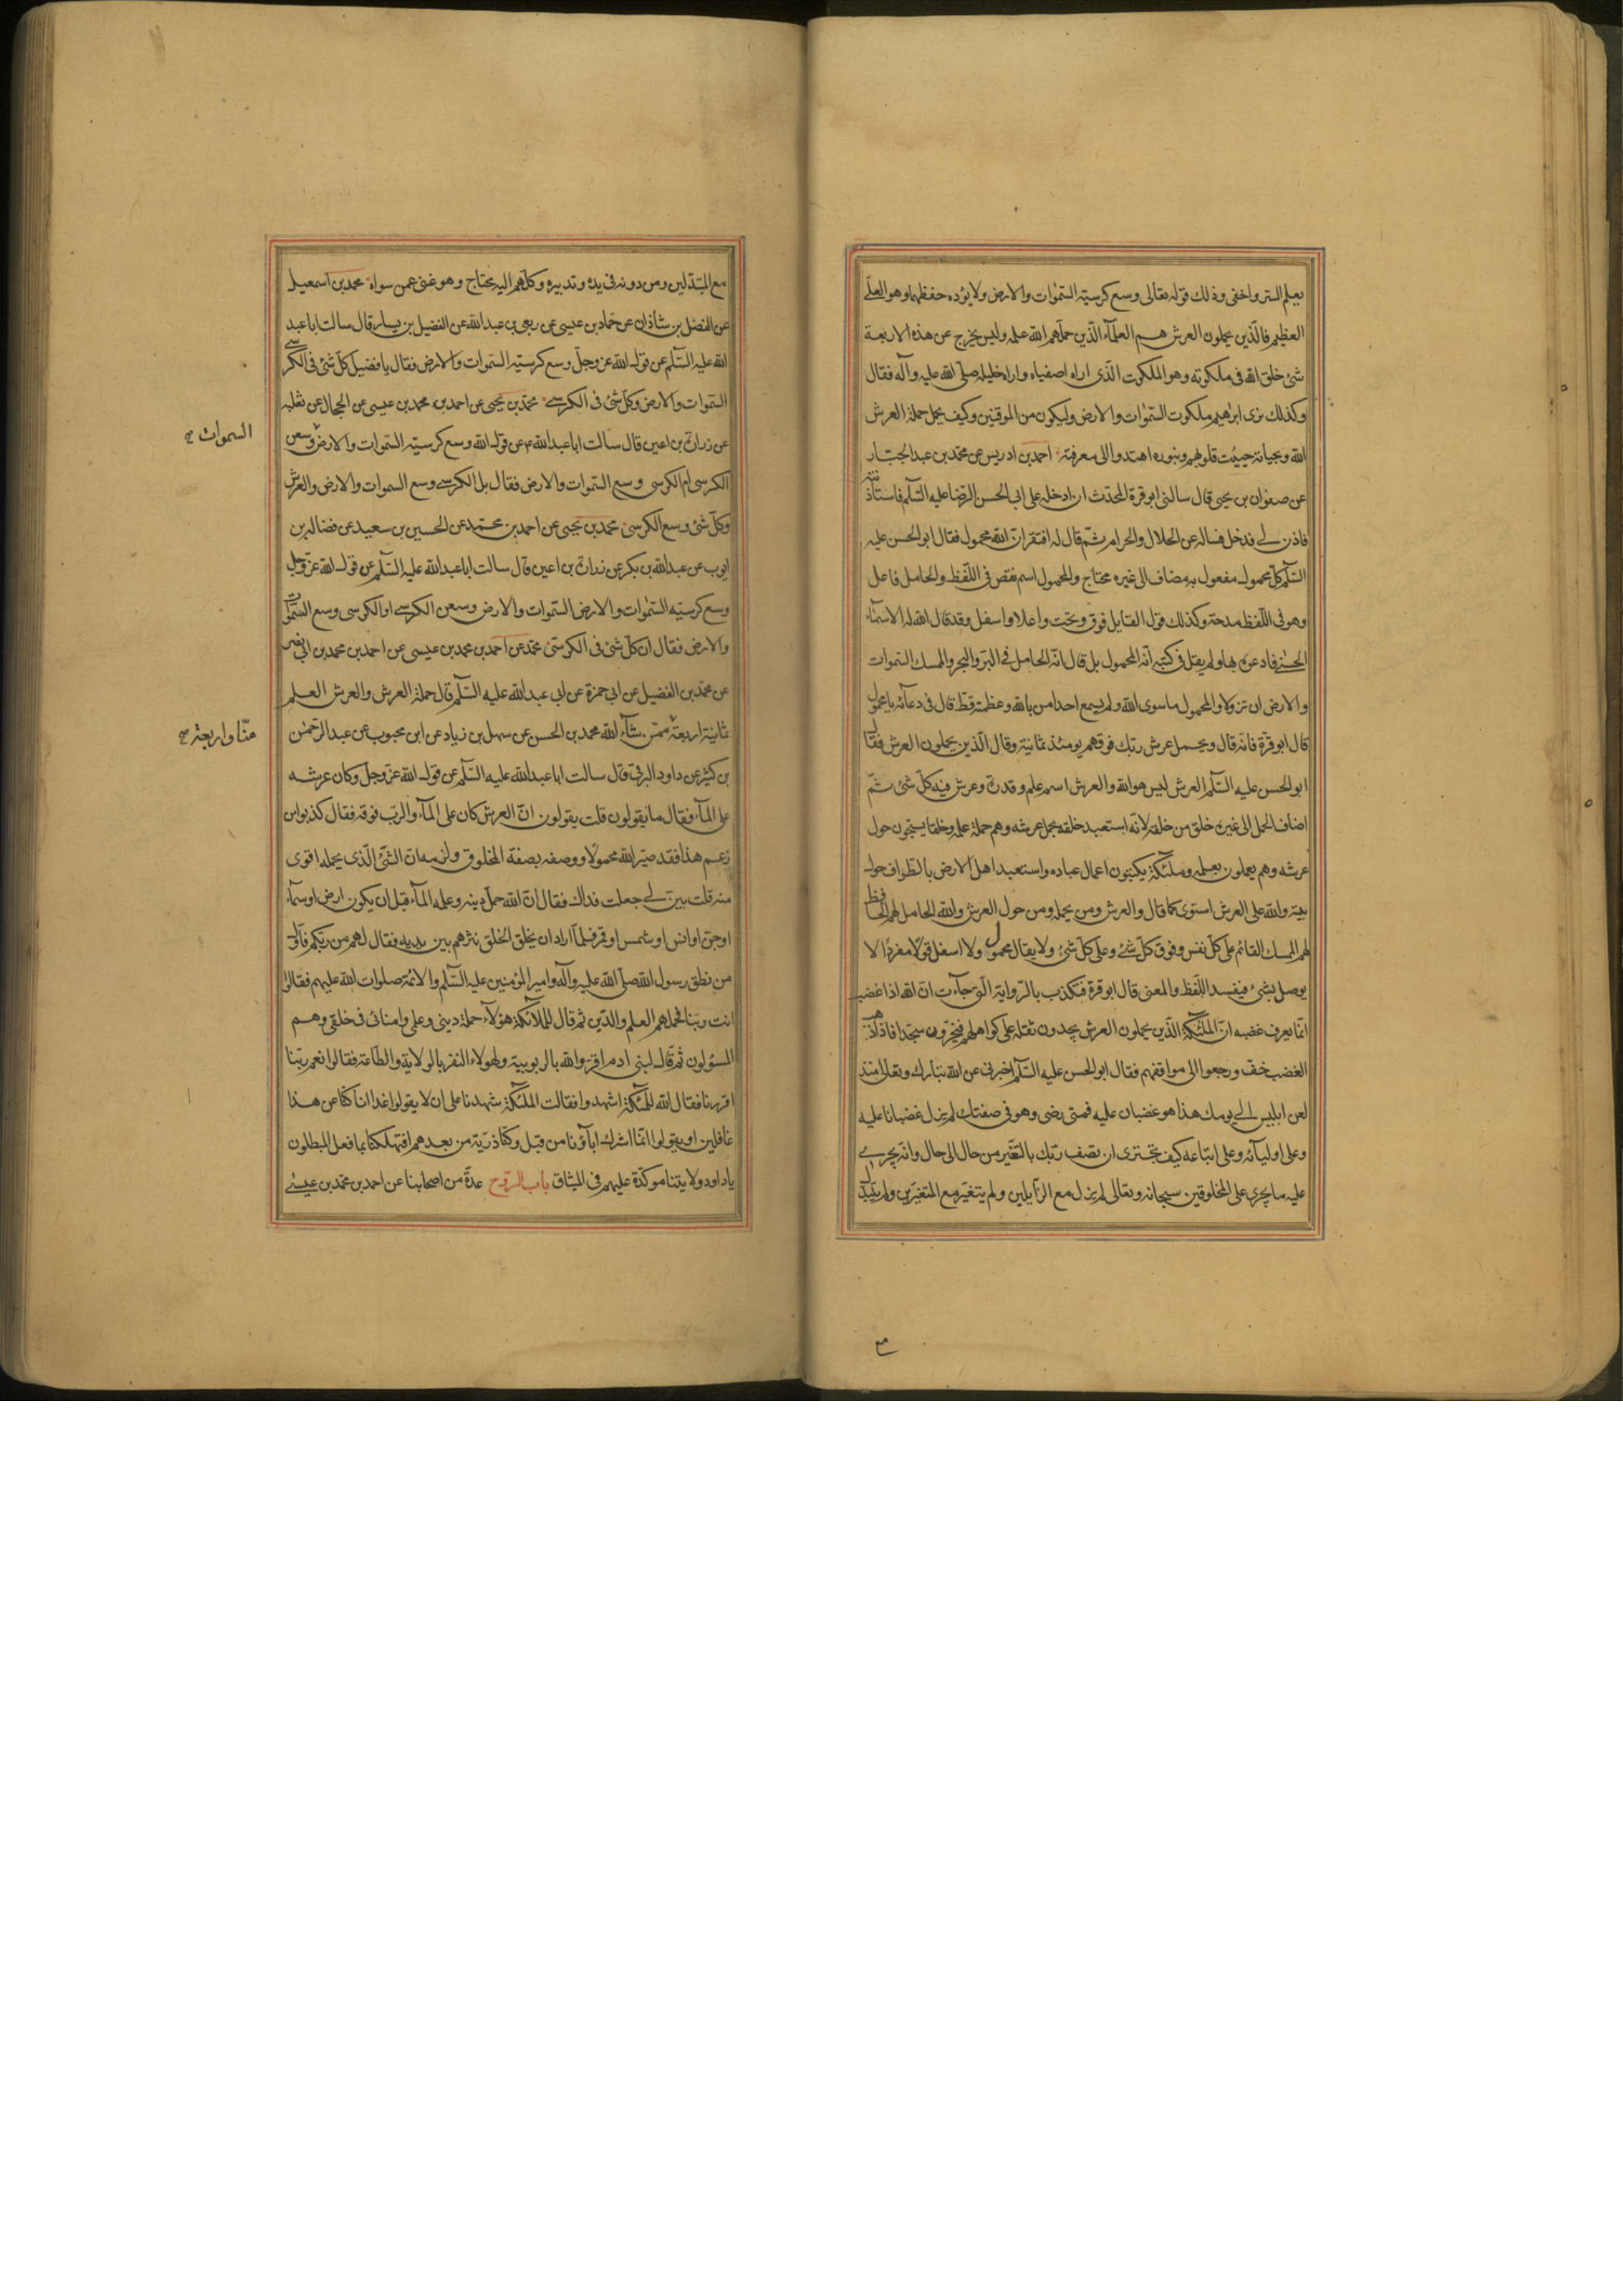 يعلم السر واخفى وذلك قوله تعالى وسع كرسيه السموات والارض ولا يؤده حفظهما وهو العلى
العظيم فالذين يحملون العرش هم العلماء الذين حملهم الله علمه وليس يخرج عن هذه الاربعة
شئ خلق الله فى ملكوته وهو الملكوت الذى اراه اصفياه واراه خليله صلى الله عليه وآله فقال
وكذلك نرى ابراهيم ملكوت السموات والارض وليكون من الموقنين وكيف يحمل حملة العرش
الله وبحياته حييت قلوبهم وبنوره اهتدوا الى معرفته احمد بن ادريس عن محمد بن عبد الجبار
عن صفوان بن يحيى قال سالنى ابو قرة المحدث ان ادخله على ابى الحسن الرضا عليه السلم فاستاذنته
فاذن لى فدخل فساله عن الحلال والحرام ثم قال له افتقر ان الله محمول فقال ابو الحسن عليه
السلم كل محمول مفعول به مضاف الى غيره محتاج والمحمول اسم نقص فى اللفظ والحامل فاعل
وهو فى اللفظ مدحة وكذلك قول القايل فوق وتحت واعلا واسفل وقد قال الله له الاسماء
الحسنى فادعوه بها ولم يقل فى كتبه انه المحمول بل قال انه الحامل فى البر والبحر والممسك السموات
والارض ان تزولا والمحمول ما سوى الله ولم يسمع احد امن بالله وعظمته قط قال فى دعائه يا محمول
قال ابو قرة فانه قال ويحمل عرش ربك فوقهم يومئذ ثمانية وقال الذين يحملون العرش فقال
ابو الحسن عليه السلم العرش ليس هو الله والعرش اسم علم وقدرة وعرش فيه كل شئ ثم
اضاف الحمل الى غيره خلق من خلقه لانه استعبد خلقه بحمل عرشه وهم حملة علمه وخلقا يسبحون حول
عرشه وهم يعملون بعلمه وملئكة يكتبون اعمال عباده واستعبد اهل الارض بالطواف حول
بيته والله على العرش استوى كما قال والعرش ومن يحمله ومن حول العرش والله الحامل لهم الحافظ
لهم الممسك القائم على كل نفس وفوق كل شئ وعلى كل شئ ولا يقال محمول ولا اسفل قولا مفردا لا
يوصل بشئ فيفسد اللفظ والمعنى قال ابو قرة فتكذب بالرواية التى جآءت ان الله اذا غضب
انما يعرف غضبه ان الملئكة الذين يحملون العرش يجدون ثقله على كواهلهم فيخرون سجدا فاذا ذهب
الغضب خف ورجعوا الى مواقفهم فقال ابو الحسن عليه السلم اخبرنى عن الله تبارك وتعالى منذ
لعن ابليس الى يومك هذا هو غضبان عليه فمتى رضى وهو فى صفتك لم يزل غضبانا عليه
وعلى اوليآئه وعلى اتباعه كيف تجترى ان تصف ربك بالتغير من حال الى حال وانه يجرى
عليه ما يجرى على المخلوقين سبحانه وتعالى لم يزل مع الزآيلين ولم يتغير مع المتغيرين ولم يتبدل
مع
مع المتبدلين ومن دونه فى يده وتدبيره وكلهم اليه يحتاج وهو غنى عمن سواه محمد بن اسمعيل
عن الفضل بن شاذان عن حماد بن عيسى عن ربعى بن عبد الله عن الفضيل بن يسار قال سالت ابا عبد
الله عليه السلم عن قول الله عز وجل وسع كرسيه السموات والارض فقال يا فضيل كل شئ فى الكرسى
السموات والارض وكل شئ فى الكرسى محمد بن يحيى عن احمد بن محمد بن عيسى عن الحجال عن ثعلبه
عن زرارة بن اعين قال سالت ابا عبد الله ع عن قول الله وسع كرسيه السموات والارض وسعن
السموات صح
الكرسى ام الكرسى وسع السموات والارض فقال بل الكرسى وسع السموات والارض والعرش
وكل شئ وسع الكرسى محمد بن يحيى عن احمد بن محمد عن الحسين بن سعيد عن فضالة بن
ايوب عن عبد الله بن بكير عن زرارة بن اعين قال سالت ابا عبد الله عليه السلم عن قول الله عز وجل
وسع كرسيه السموات والارض السموات والارض وسعن الكرسى او الكرسى وسع السموات
والارض فقال ان كل شئ فى الكرسى محمد عن احمد بن محمد بن عيسى عن احمد بن محمد بن ابى نصر
عن محمد بن الفضيل عن ابى حمزة عن ابى عبد الله عليه السلم قال حملة العرش والعرش العلم
ثمانية اربعة ممن شآء الله محمد بن الحسن عن سهل بن زياد عن ابن محبوب عن عبد الرحمن
منا واربعة صح
بن كثير عن داود الرقى قال سالت ابا عبد الله عليه السلم عن قول الله عز وجل وكان عرشه
على المآء فقال ما يقولون قلت يقولون ان العرش كان على المآء والرب فوقه فقال كذبوا من
زعم هذا فقد صير الله محمولا ووصفه بصفة المخلوق ولزمه ان الشئ الذى يحمله اقوى
منه قلت بين لى جعلت فداك فقال ان الله حمل دينه وعلمه المآء قبل ان يكون ارض او سمآء
او جن او انس او شمس او قمر فلما اراد ان يخلق الخلق نثرهم بين يديه فقال لهم من ربكم فاول
من نطق رسول الله صلى الله عليه وآله وامير المؤمنين عليه السلم والائمة صلوات الله عليهم فقالوا
انت ربنا فحملهم العلم والدين ثم قال للملآئكة هؤلآء حملة دينى وعلمى وامنائى فى خلقى وهم
المسؤلون ثم قال لبنى ادم اقروا لله بالربوبية ولهولاء النفر بالولاية والطاعة فقالوا نعم ربنا
اقررنا فقال الله للملئكة اشهدوا فقالت الملئكة شهدنا على ان لا يقولوا غدا انا كنا عن هذا
غافلين او يقولوا انما اشرك ابآؤنا من قبل وكنا ذرية من بعدهم افتهلكنا بما فعل المبطلون
يا داود ولايتنا موكدة عليهم فى الميثاق باب الروح عدة من اصحابنا عن احمد بن محمد بن عيسى